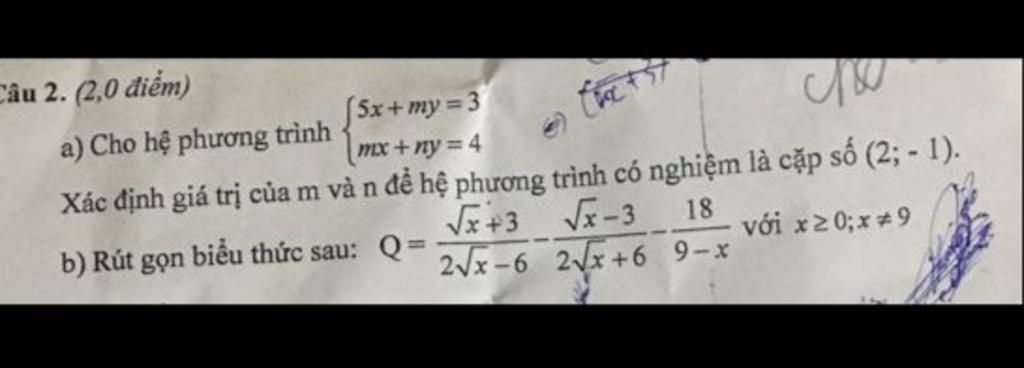 Câu 2. (2,0 điểm)
a) Cho hệ phương trình {5x + my = 3
mx + ny = 4
Xác định giá trị của m và n để hệ phương trình có nghiệm là cặp số (2; - 1).
b) Rút gọn biểu thức sau: Q = (√x + 3)/(2√x − 6) − (√x − 3)/(2√x + 6) − 18/(9 − x) với x ≥ 0; x ≠ 9